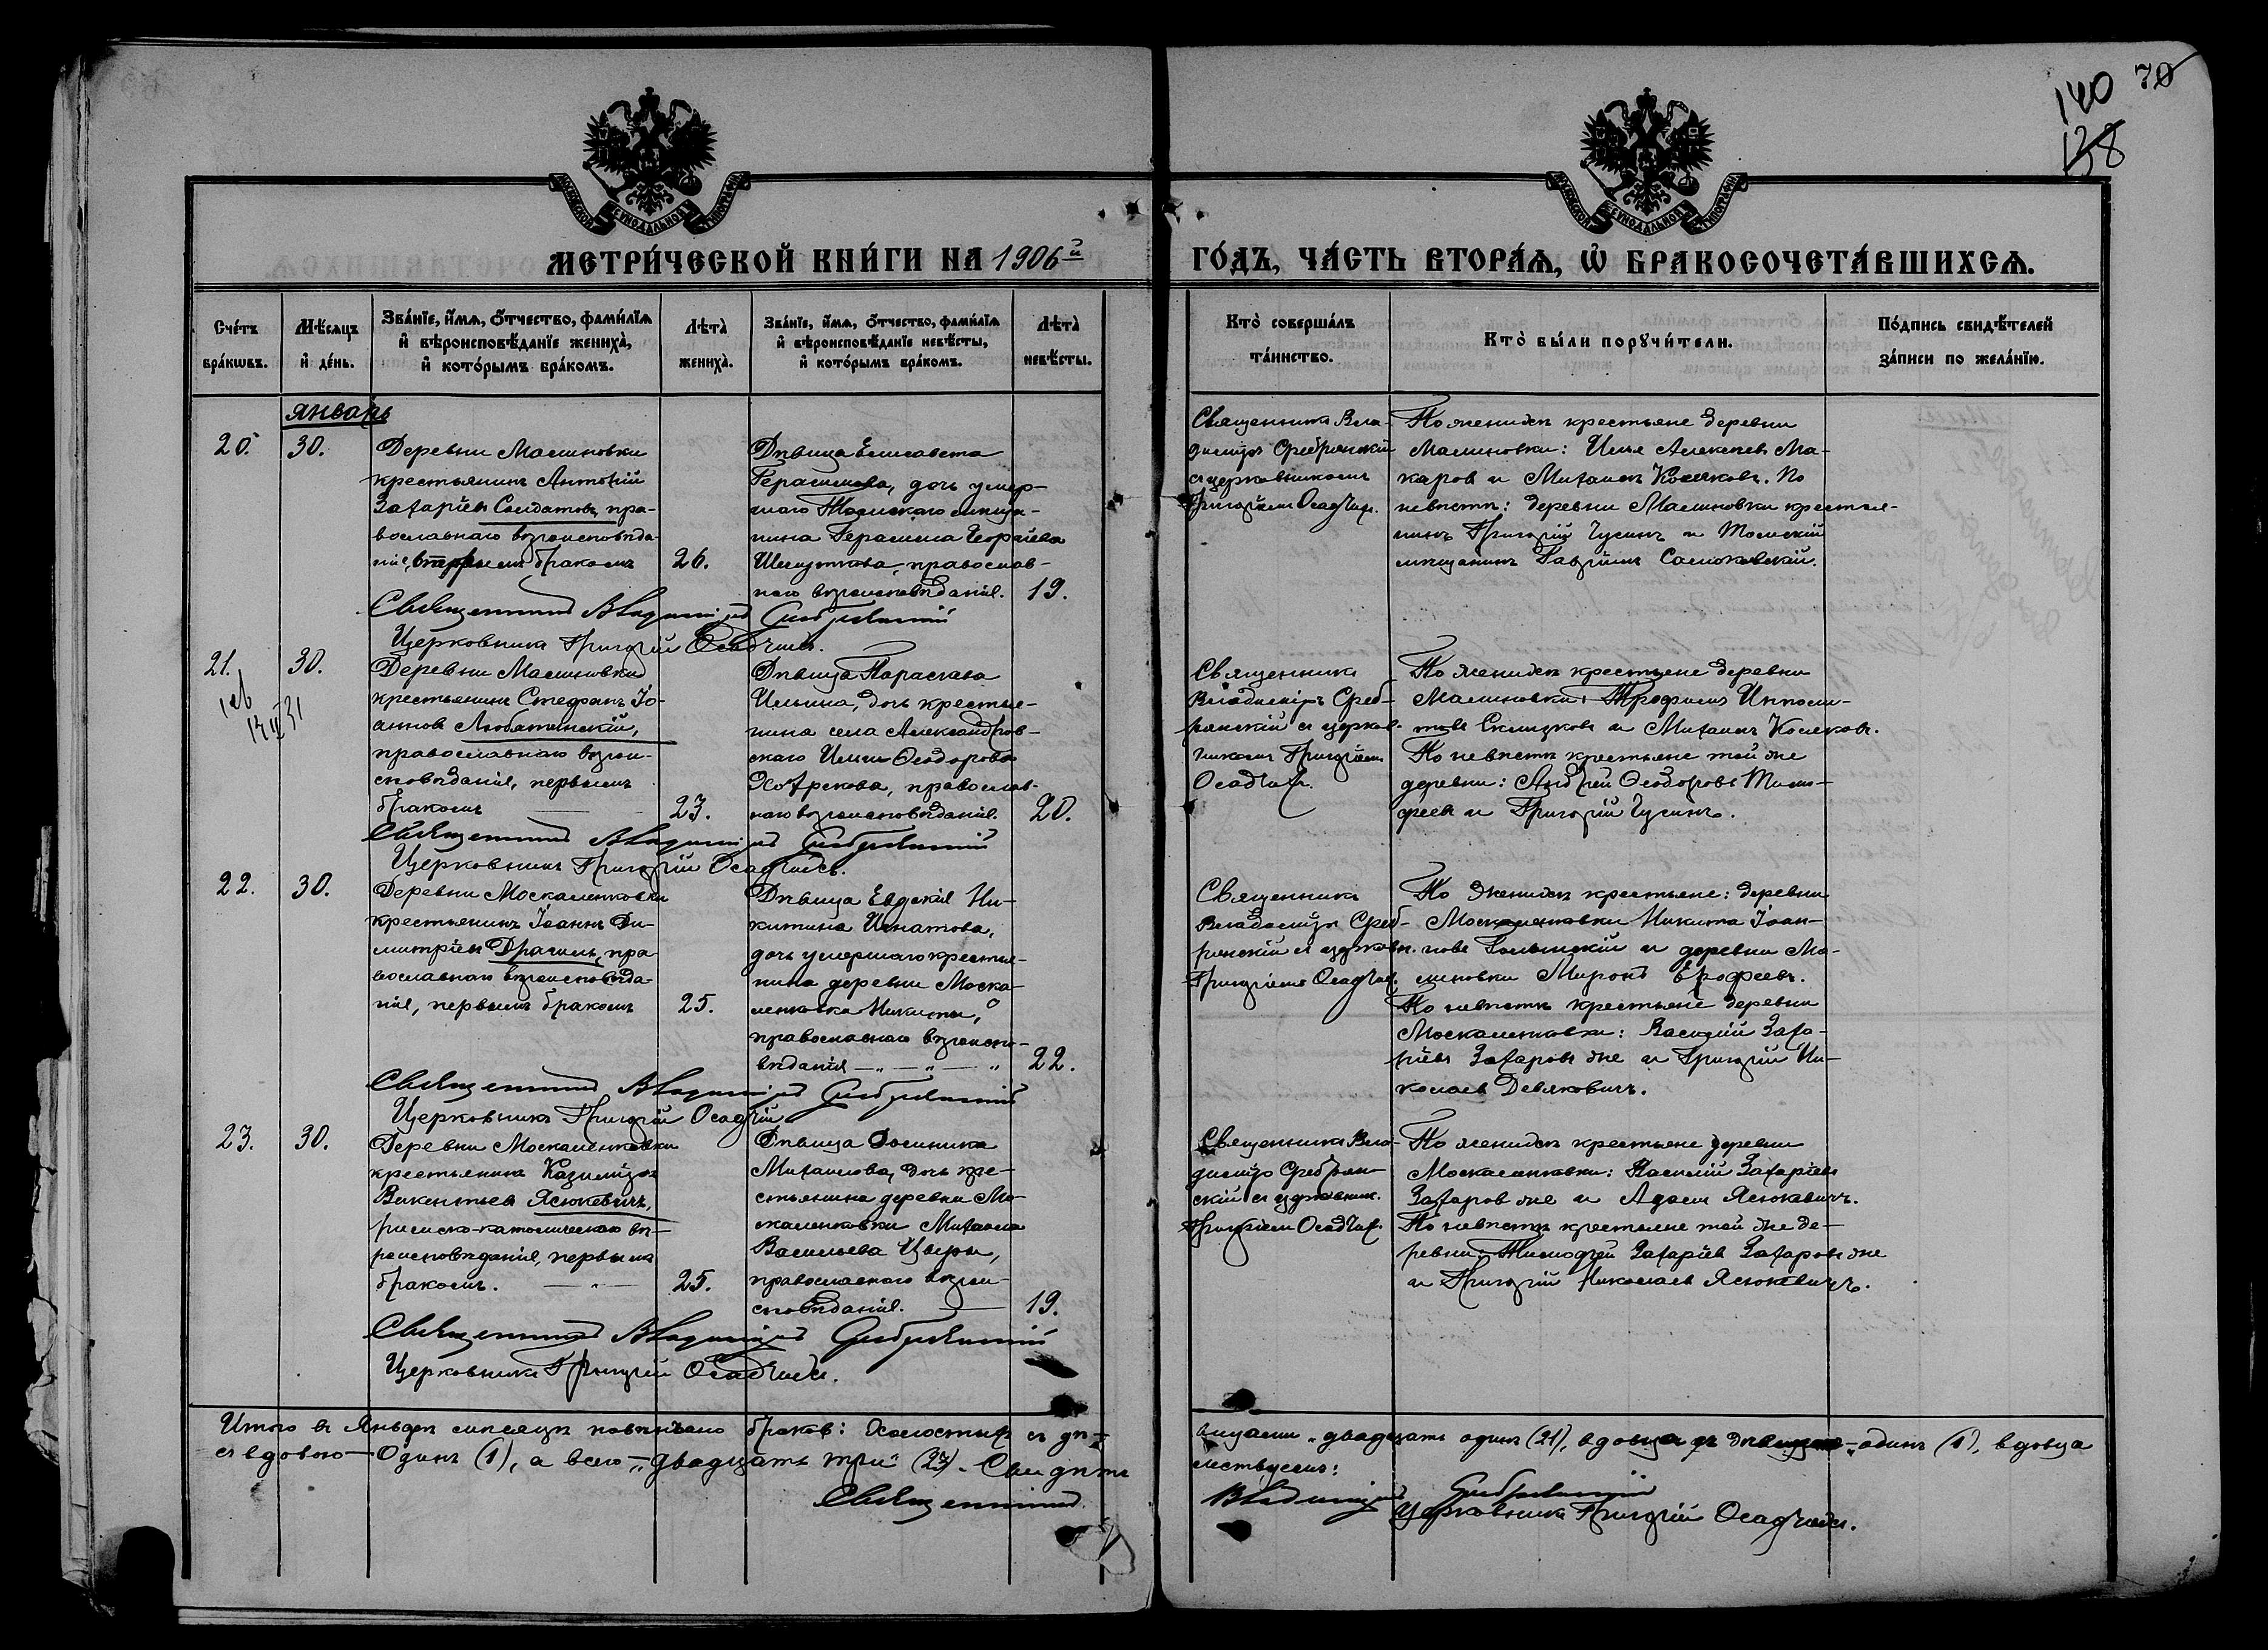 140 70
138
МОСКОВСКОЙ СѴНОДАЛЬНОЙ ТИПОГРАФІИ
МОСКОВСКОЙ СѴНОДАЛЬНОЙ ТИПОГРАФІИ
МЕТРИ́ЧЕСКОЙ КНИ́ГИ НА 1906й
ГО́ДЪ, ЧА́СТЬ ВТОРА́Ѧ, Ѡ҆ БРАКОСОЧЕТА́ВШИХСѦ.
Сче́тъ бра́кѡвъ.
Мѣ́сѧцъ и҆ де́нь.
Зва́нїе, и҆́мѧ, ѻ҆́тчество, фами́лїѧ
и҆ вѣроисповѣ́данїе жениха̀,
и҆ кото́рымъ бра́комъ.
Лѣта̀ жениха̀.
Зва́нїе, и҆́мѧ, ѻ҆́тчество, фами́лїѧ
и҆ вѣроисповѣ́данїе невѣ́сты,
и҆ кото́рымъ бра́комъ.
Лѣта̀ невѣ́сты.
Кто̀ соверша́лъ
та́инство.
Кто̀ бы́ли порꙋчи́тели.
По́дпись свидѣ́телей
за́писи по жела́нїю.
Январь
20. 30.
Деревни Малиновки
крестьянинъ Антоній
Захаріевъ Солдатовъ, пра-
вославнаго вѣроисповѣда-
нія, вторымъ бракомъ
26.
Дѣвица Елисавета
Герасимова, дочь умер-
шаго Томскаго мѣща-
нина Герасима Георгіева
православ-
наго вѣроисповѣданія.
19.
Священникъ Вла-
димiръ Сребрянскій
съ церковникомъ
Григоріемъ Осадчи.
По женихѣ крестьяне деревни
Малиновки: Илья Алексѣевъ Ма-
каровъ и Михаилъ Косяковъ. По
невѣстѣ: деревни Малиновки крестья-
нинъ Григорій Чусинъ и Томскій
мѣщанинъ Гавріилъ
Священникъ Владиміръ Сребрянскій
Церковникъ Григорій Осадчій.
21. 30.
Деревни Малиновки
крестьянинъ Стефанъ Іо-
анновъ Любатинскій,
православнаго вѣрои-
сповѣданія, первымъ
бракомъ
23.
Дѣвица Параскева
Ильина, дочь крестья-
нина села Александров-
скаго Ильи Ѳеодорова
православ-
наго вѣроисповѣданія.
20.
Священникъ
Владиміръ Среб-
рянскій съ церков-
никомъ Григоріемъ
Осадчи.
По женихѣ крестьяне деревни
Малиновки: Трофимъ Ипполи-
товъ и Михаилъ Косяковъ.
По невѣстѣ крестьяне той же
деревни: Андрей Ѳеодоровъ Тимо-
феевъ и Григорій Чусинъ.
Священникъ Владиміръ Сребрянскій
Церковникъ Григорій Осадчій.
22. 30.
Деревни Москаленковки
крестьянинъ Іоаннъ Ди-
митріевъ Драчилъ, пра-
вославнаго вѣроисповѣда-
нія, первымъ бракомъ
25.
Дѣвица Евдокія Ни-
китина Игнатова,
дочь умершаго крестья-
нина деревни Моска-
ленковка Никиты,
православнаго вѣроиспо-
вѣданія
22.
Священникъ
Владиміръ Среб-
рянскій съ церковн.
Григоріемъ Осадчи.
По женихѣ крестьяне: деревни
Москаленковки Никита Іоан-
новъ и деревни Ма-
линовки Миронъ Ерофеевъ.
По невѣстѣ крестьяне деревни
Москаленковки: Василій Заха-
ріевъ Захаровъ же и Григорій Ни-
колаевъ Девяковичъ.
Священникъ Владиміръ Сребрянскій
Церковникъ Григорій Осадчій
23. 30.
Деревни Москаленковки
крестьянинъ Казиміръ
Викентьевъ Ясюкевичъ,
римско-католическаго вѣ-
роисповѣданія, первымъ
бракомъ.
25.
Дѣвица Домника
Михаилова, дочь кре-
стьянина деревни Мо-
скаленковки Михаила
Васильева Цвѣры,
православнаго вѣрои-
сповѣданія.
19.
Священникъ Вла-
диміръ Сребрян-
скій съ церковник.
Григоріемъ Осадчи.
По женихѣ крестьяне деревни
Москаленковки: Василій Захаріевъ
Захаровъ же и Адамъ Ясюкевичъ.
По невѣстѣ крестьяне той же де-
ревни: Тимофей Захаріевъ Захаровъ же
и Григорій Николаевъ Ясюкевичъ.
Священникъ Владиміръ Сребрянскій
Церковникъ Григорій Осадчій.
Итого въ Январѣ мѣсяцѣ повѣнчано браковъ: холостыхъ съ дѣ- вицами „двадцать одинъ (21), вдовца съ дѣвицею - „одинъ (1), вдовца
съ вдовою - Одинъ (1), а всего - „двадцать три" (23). Свидѣтель- ствуемъ:
Священникъ Владиміръ Сребрянскій
Церковникъ Григорій Осадчій.